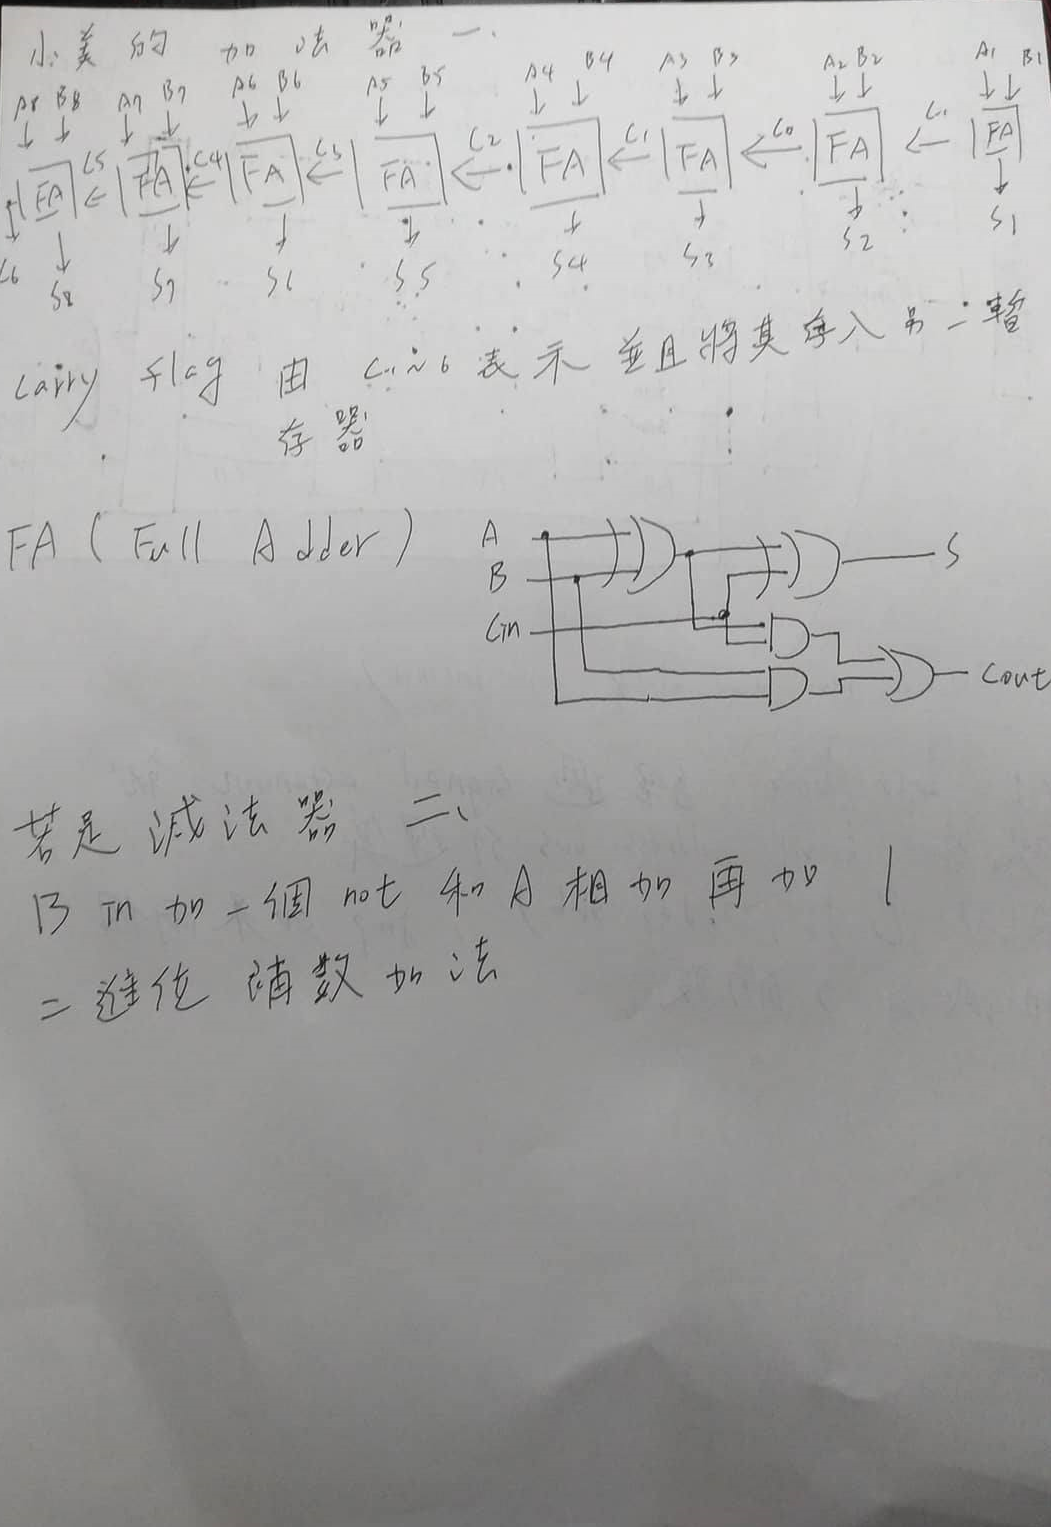 小美的 加法器 一、
A8 B8 A7 B7 A6 B6 A5 B5 A4 B4 A3 B3 A2 B2 A1 B1
FA C5 FA C4 FA C3 FA C2 FA C1 FA C0 FA C-1 FA
C6 S8 S7 S6 S5 S4 S3 S2 S1
Carry flag 由 C-1~6 表示 並且將其存入另一暫
存器
FA ( Full Adder )
A
B
Cin
S
Cout
若是 減法器 二、
B in 加一個 not 和 A 相加 再加 1
二進位 補數加法